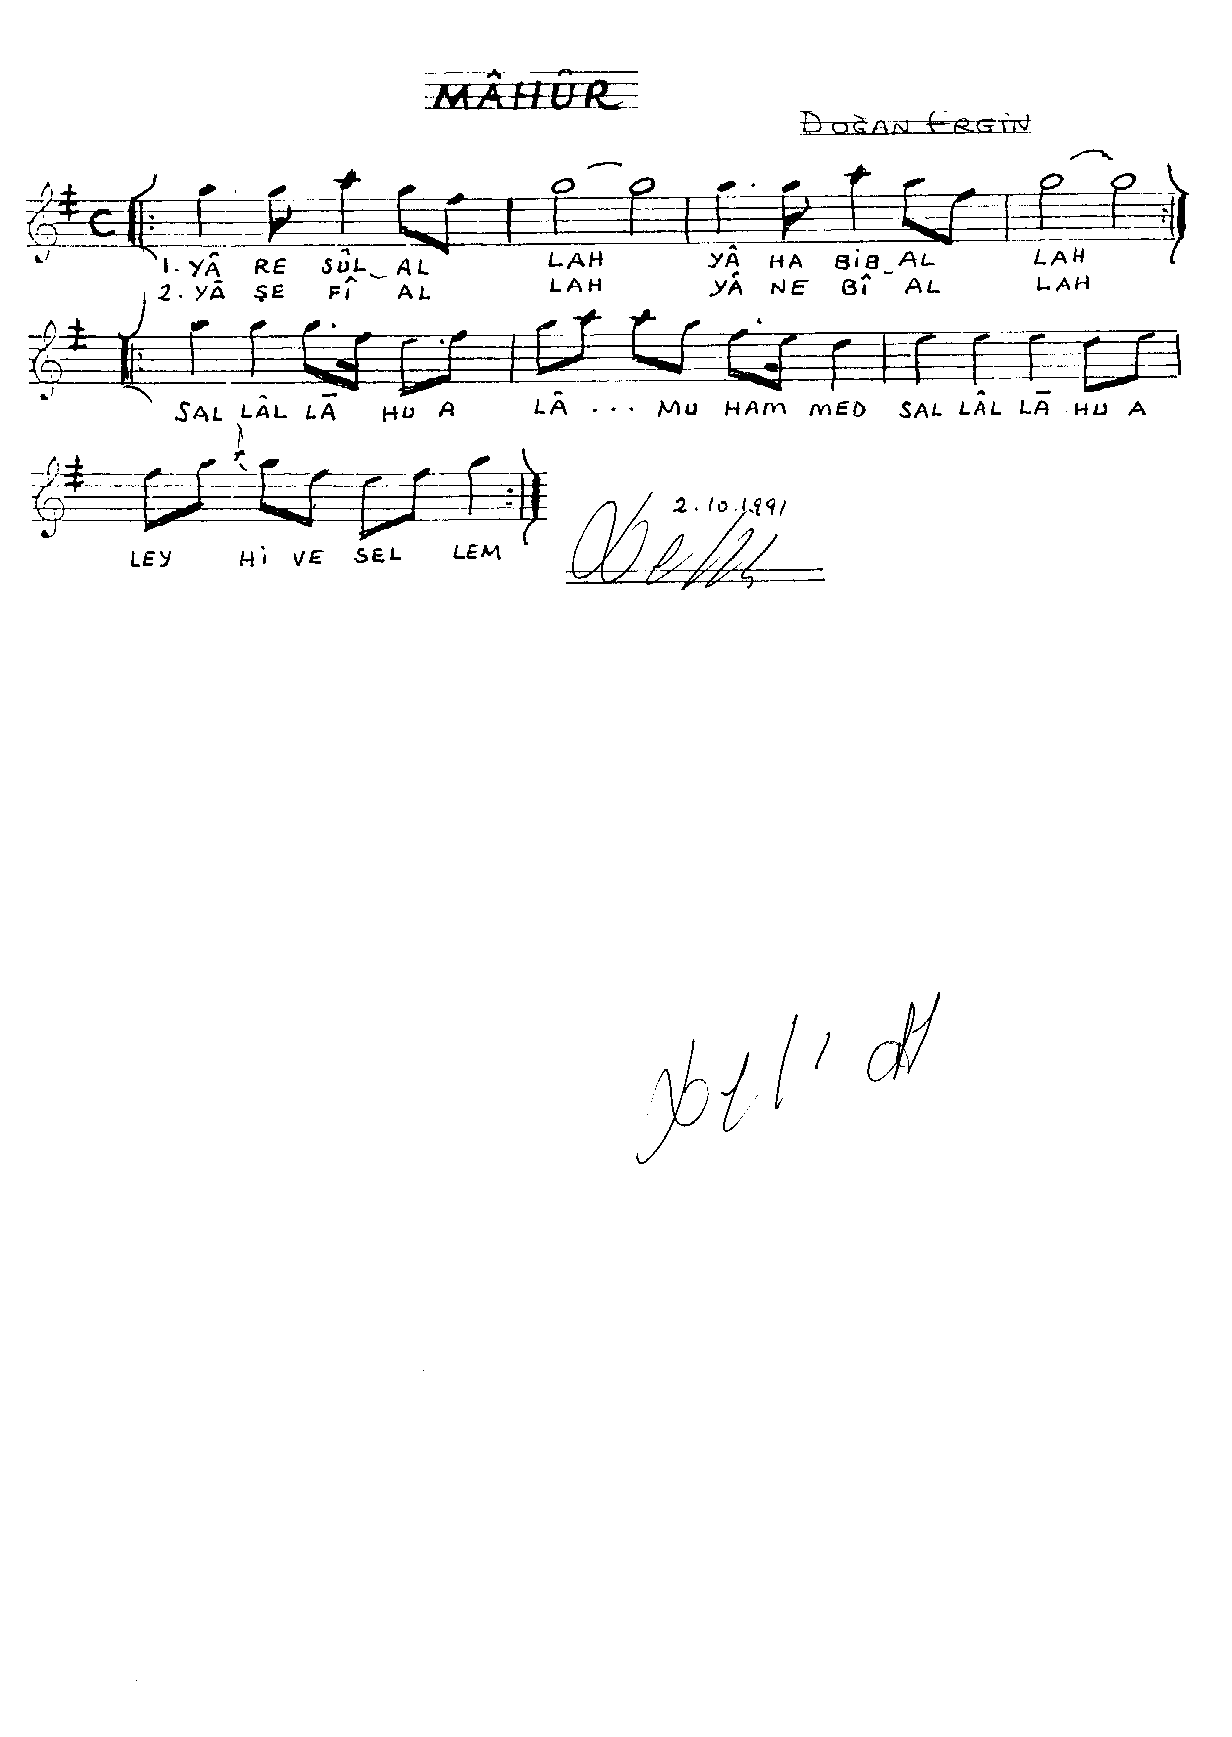 MÂHÛR
DOĞAN ERGİN
1. YÂ RE SÛL_AL LAH YÂ HA BİB_AL LAH
2. YÂ ŞE FÎ AL LAH YÂ NE BÎ AL LAH
SAL LÂL LĀ HU A LÂ ... MU HAM MED SAL LÂL LĀ HU A
LEY Hİ VE SEL LEM
2.10.1991